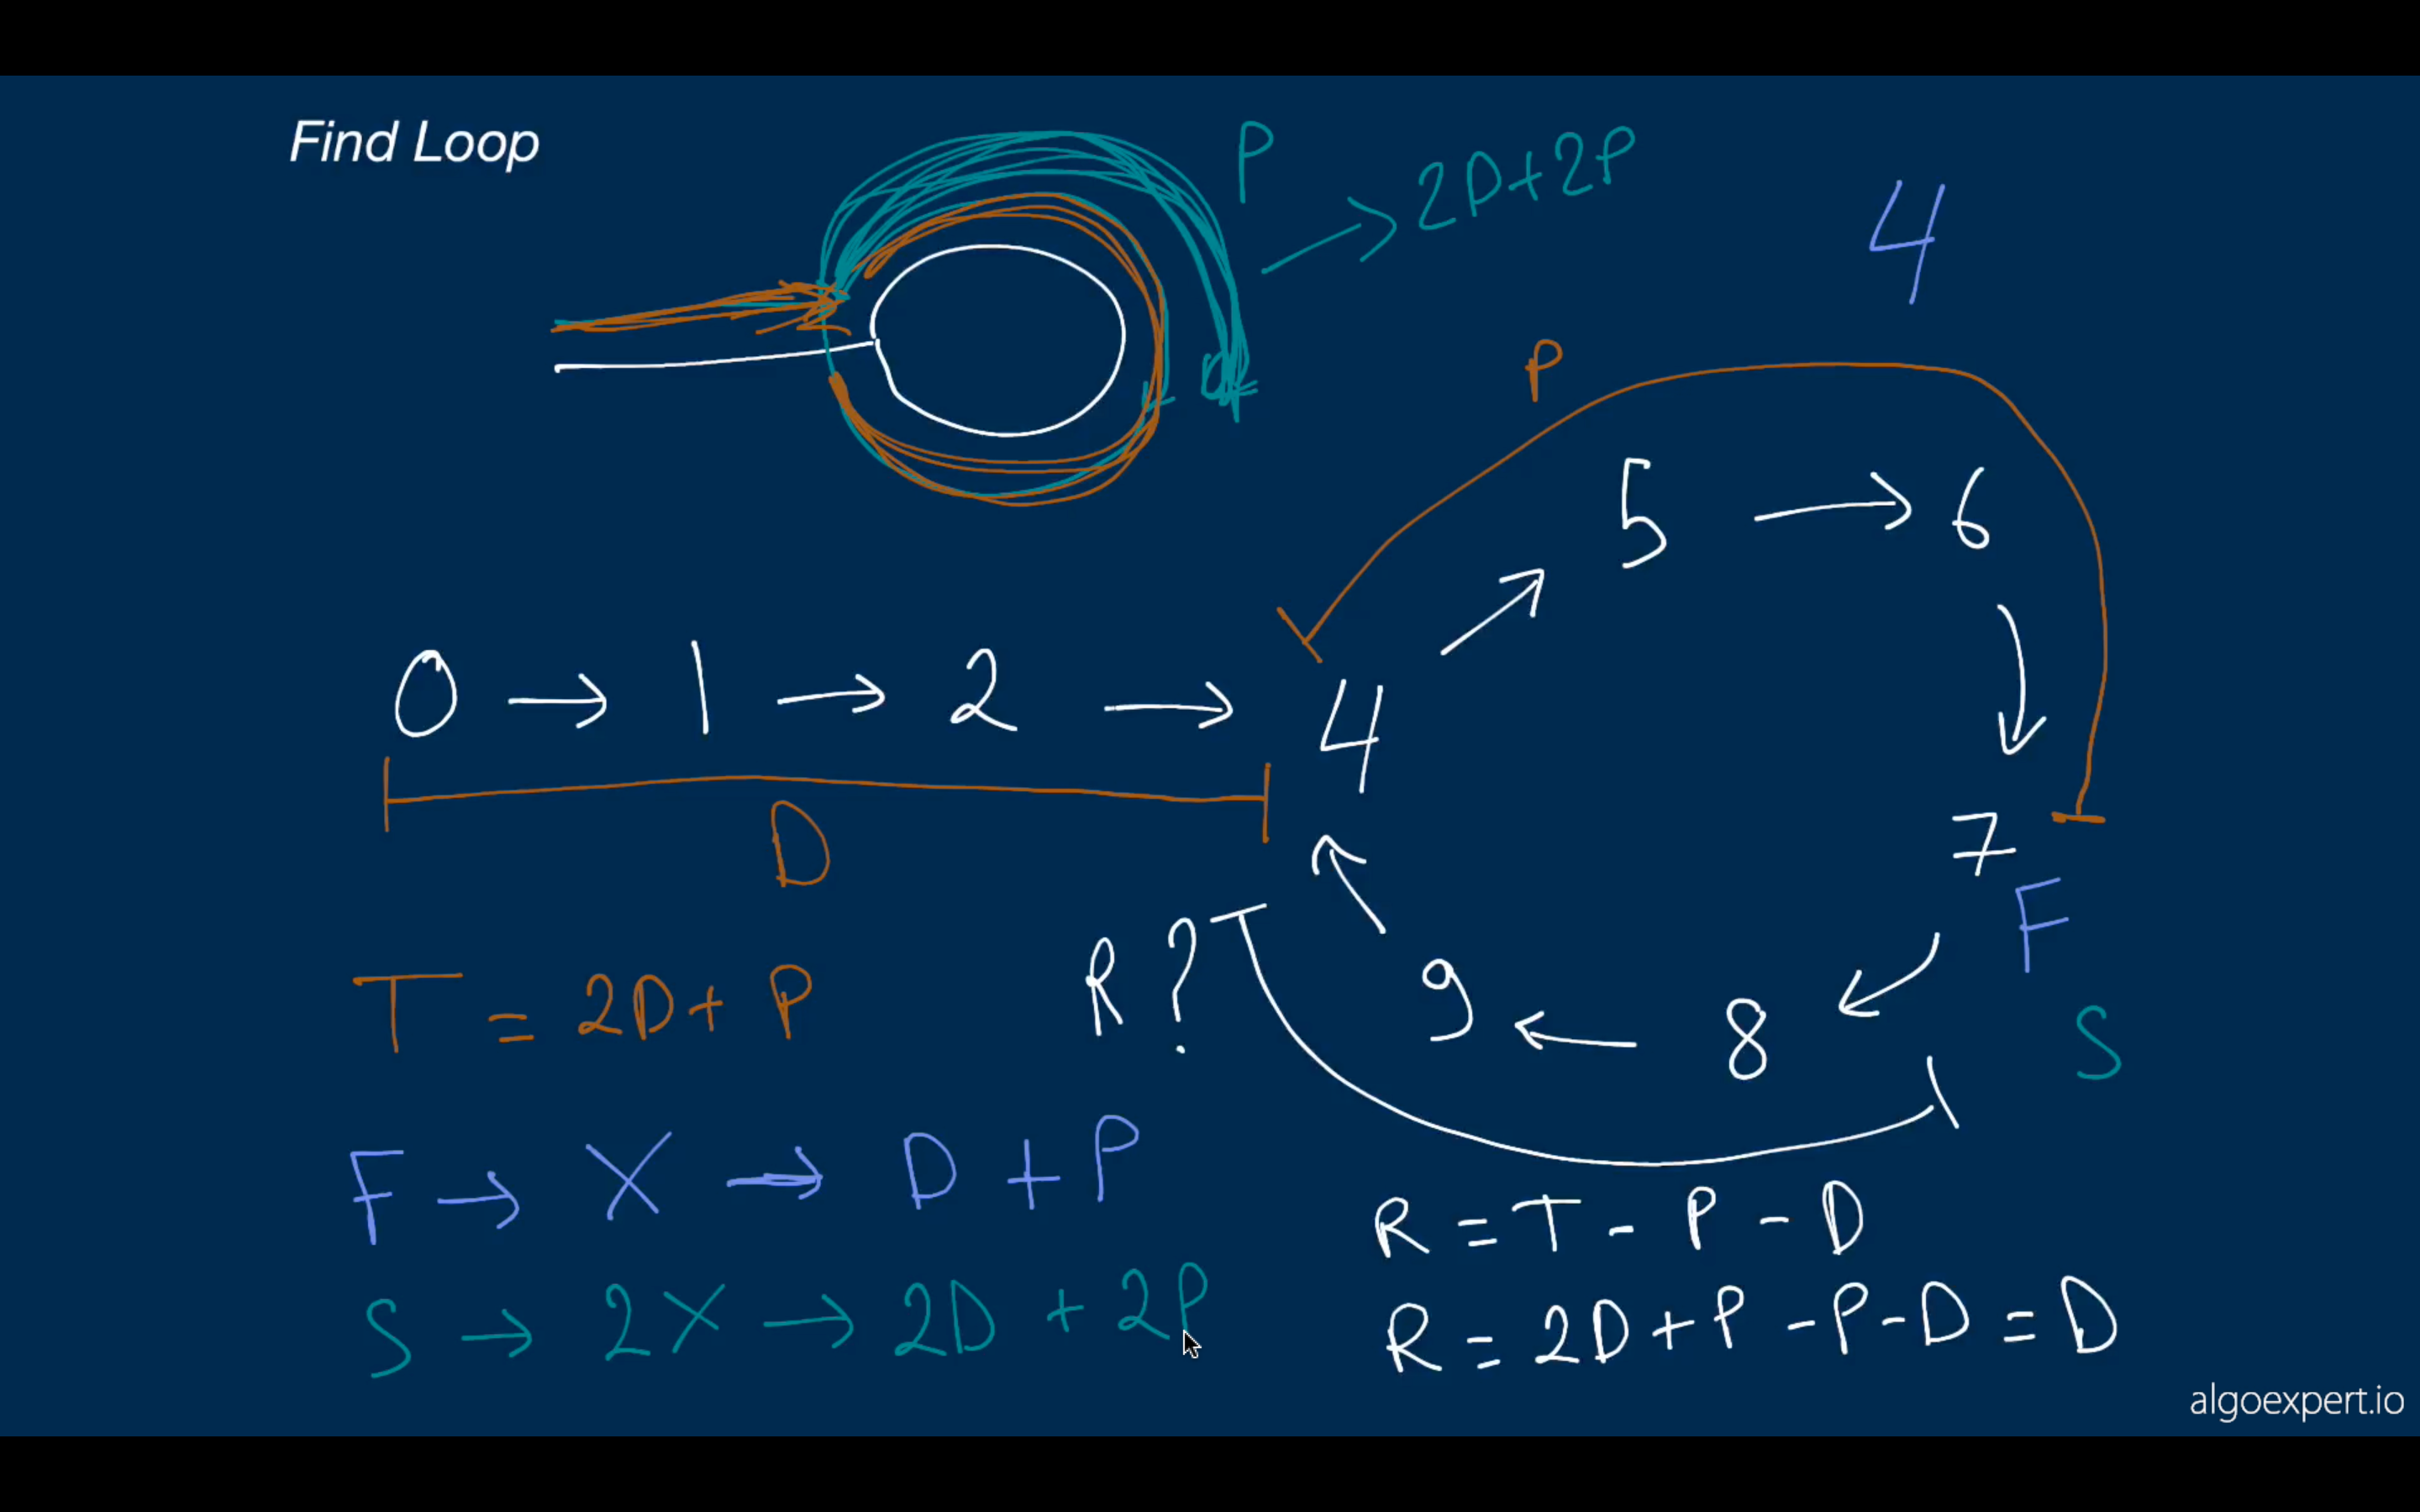 Find Loop
P
→ 2D+2P
4
P
5 → 6
0 → 1 → 2 → 4
7
D
F
R?
9 ← 8
T = 2D+ P
S
F → X → D + P
R = T - P - D
S → 2X → 2D + 2P
R = 2D+P -P-D = D
algoexpert.io